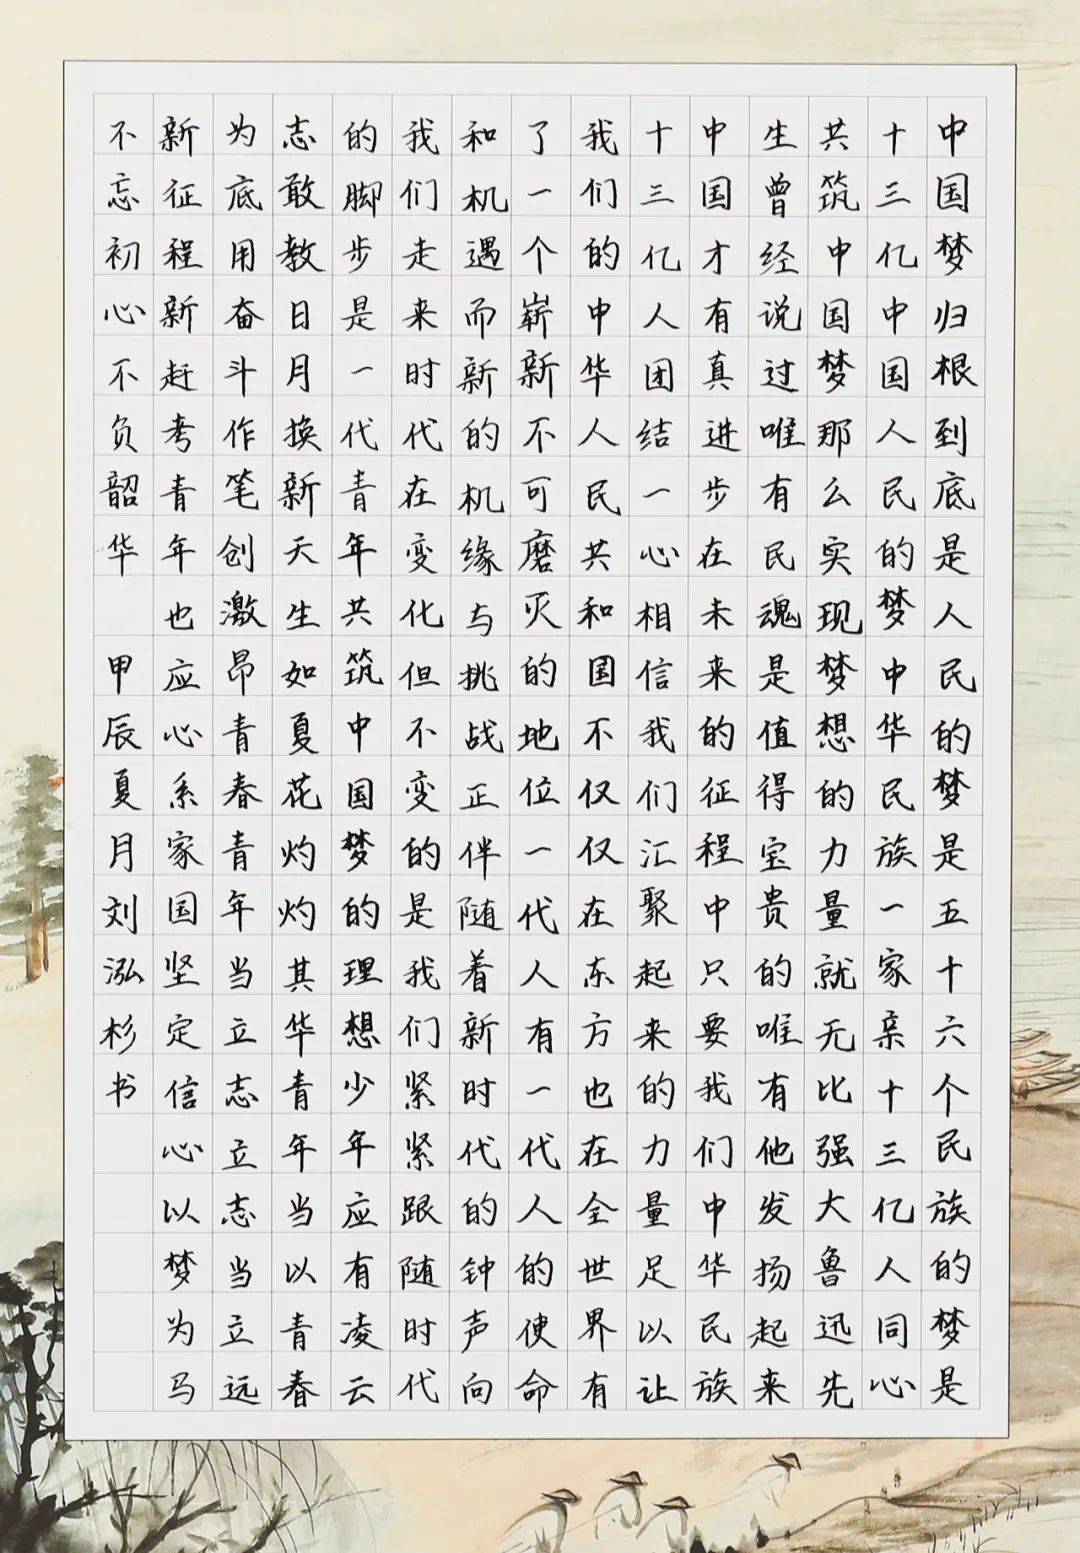 中国梦归根到底是人民的梦是五十六个民族的梦是
十三亿中国人民的梦中华民族一家亲十三亿人同心
共筑中国梦那么实现梦想的力量就无比强大鲁迅先
生曾经说过唯有民魂是值得宝贵的唯有他发扬起来
中国才有真进步在未来的征程中只要我们中华民族
十三亿人团结一心相信我们汇聚起来的力量足以让
我们的中华人民共和国不仅仅在东方也在全世界有
了一个崭新不可磨灭的地位一代人有一代人的使命
和机遇而新的机缘与挑战正伴随着新时代的钟声向
我们走来时代在变化但不变的是我们紧紧跟随时代
的脚步是一代青年共筑中国梦的理想少年应有凌云
志敢教日月换新天生如夏花灼灼其华青年当以青春
为底用奋斗作笔创激昂青春青年当立志立志当立远
新征程新赶考青年也应心系家国坚定信心以梦为马
不忘初心不负韶华 甲辰夏月刘泓杉书